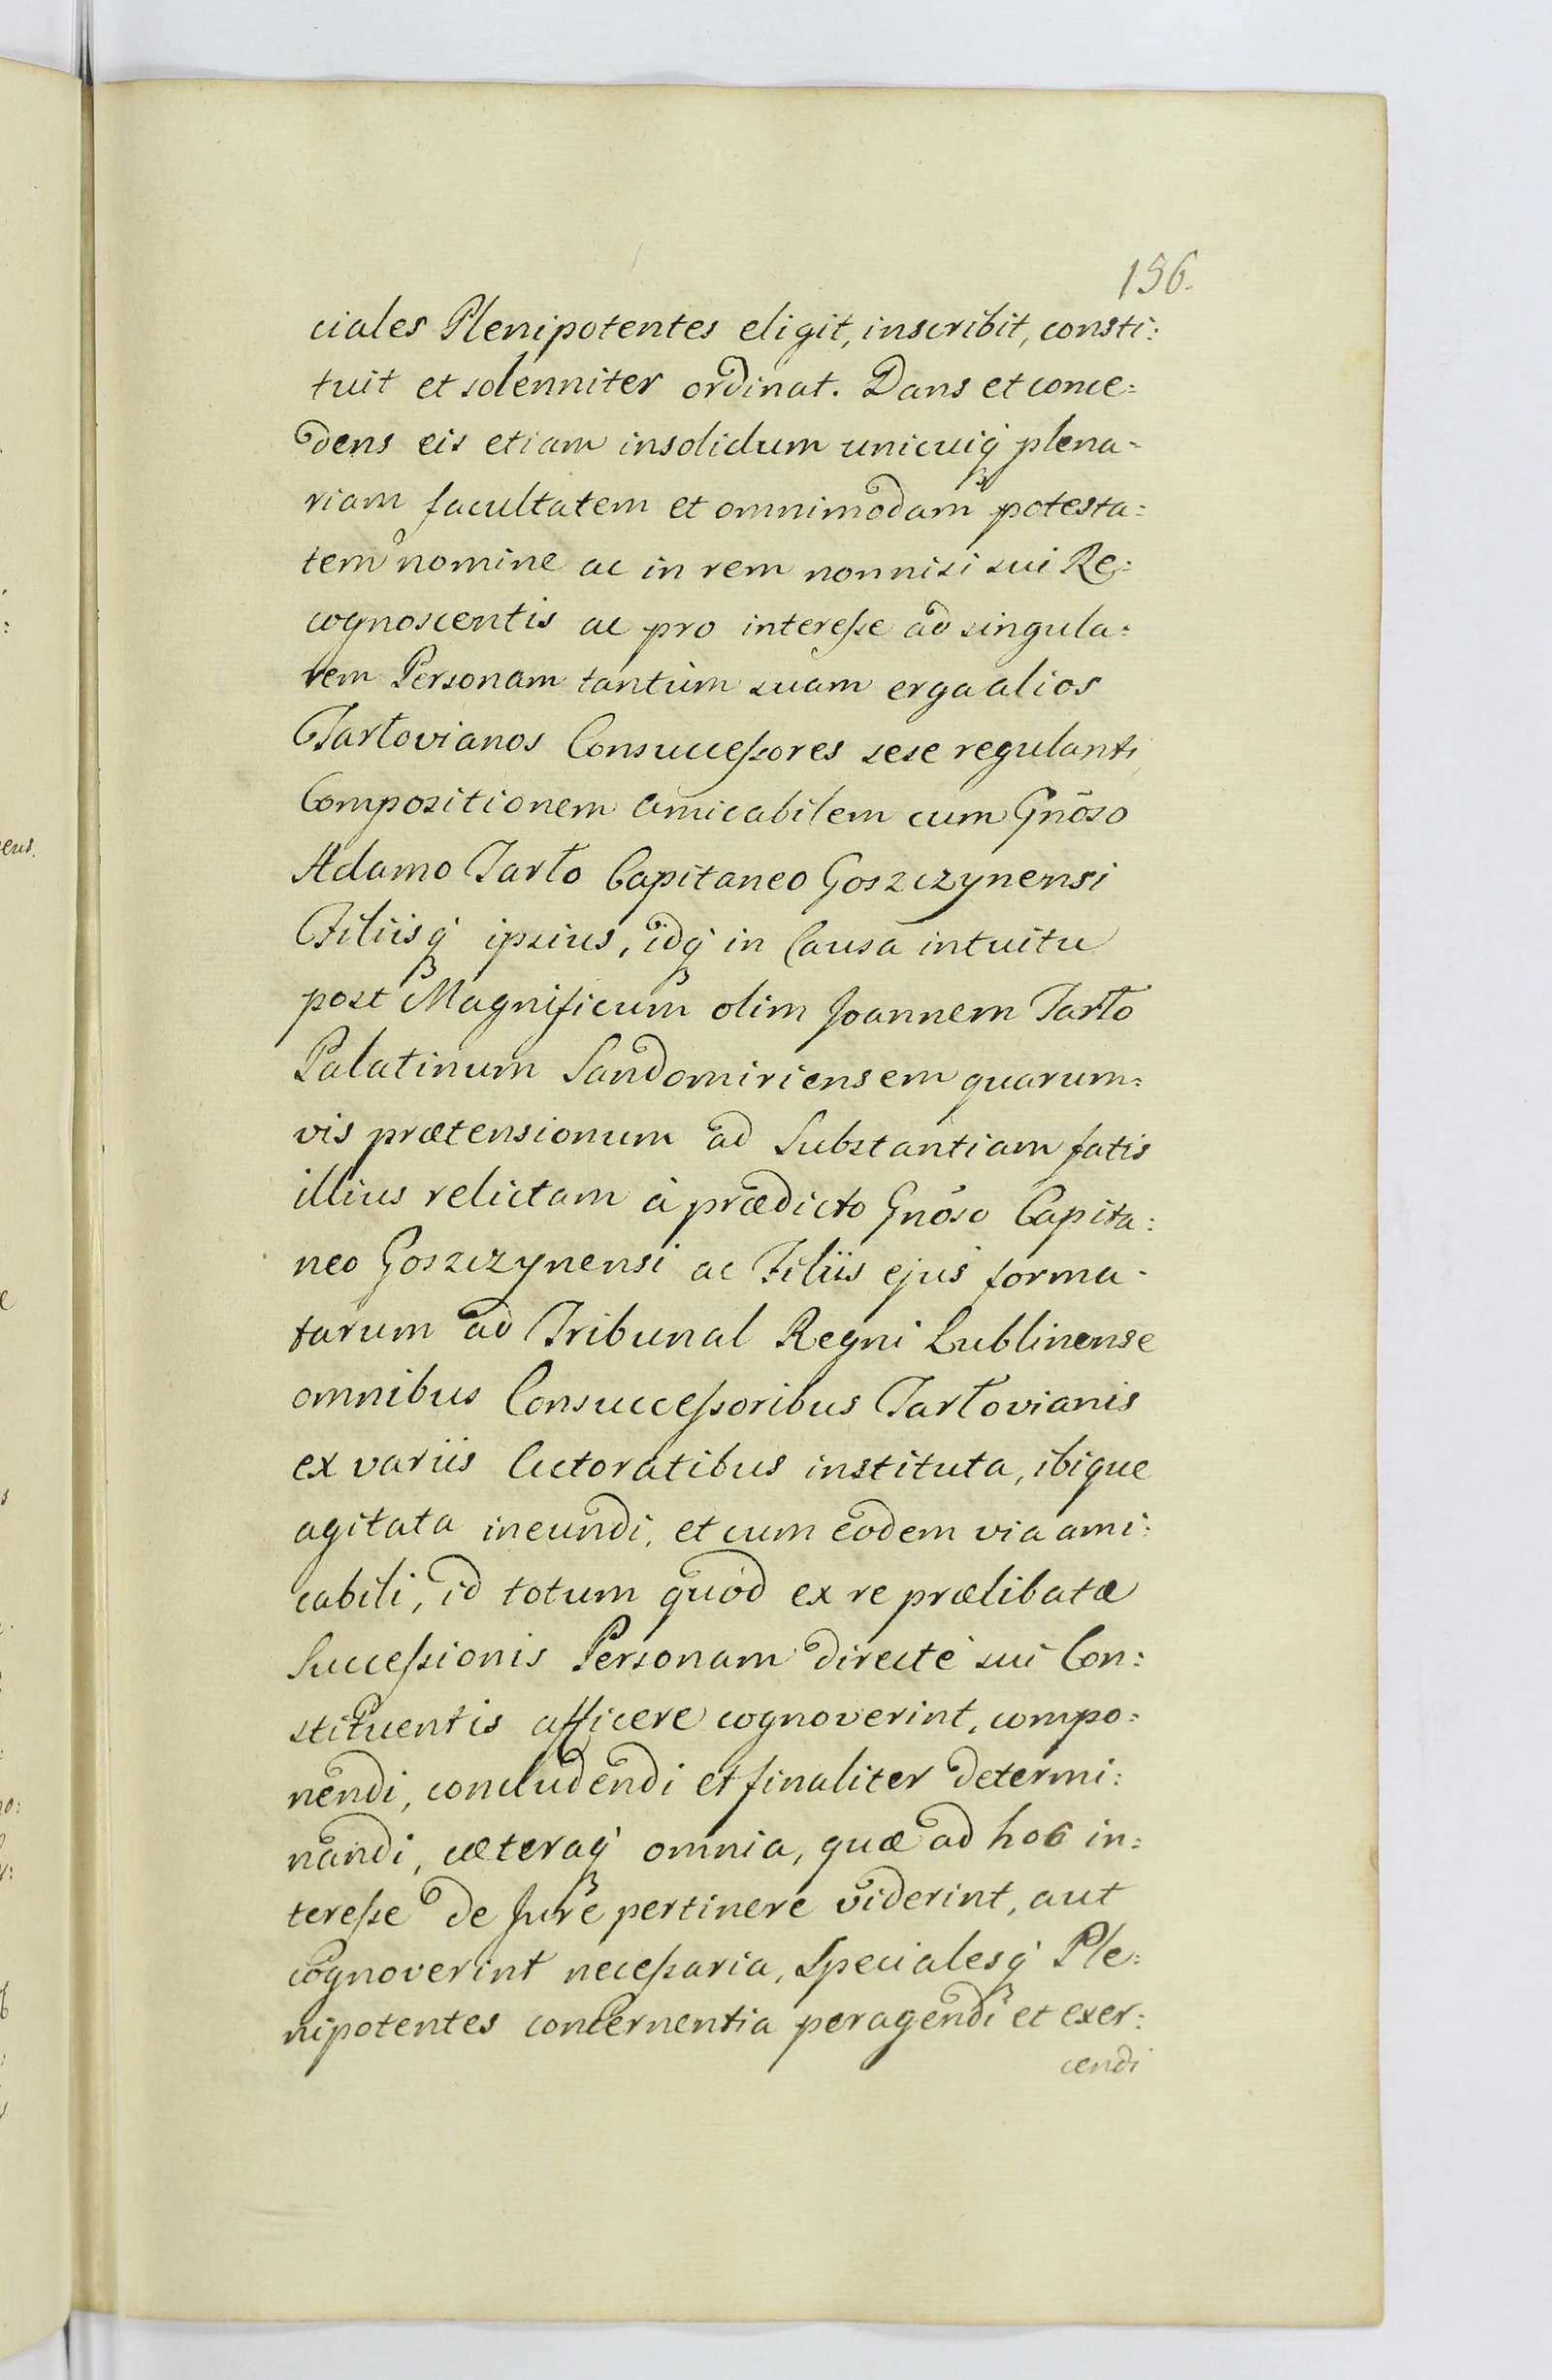 156.
ciales Plenipotentes eligit, inscribit, consti:
tuit et solenniter ordinat. Dans et conce:
dens eis etiam insolidum unicuiq́ plena-
riam facultatem et omnimodam potesta:
tem nomine ac in rem nonnisi sui Re:
cognoscentis ac pro interesse ad singula:
rem Personam tantùm suam erga alios
Tarłovianos Consuccessores sese regulanti,
Compositionem amicabilem cum Gnõso
Adamo Tarło Capitaneo Goszczynensi
Filiisq́ ipsius, idq́ in Causa intuitu
post Magnificum olim Joannem Tarło
Palatinum Sandomiriensem quarum:
vis prætensionum ad Substantiam fatis
illius relictam à prædicto Gnõso Capita:
neo Goszczynensi ac Filiis ejus forma-
tarum ad Tribunal Regni Lublinense
omnibus Consuccessoribus Tarłovianis
ex variis Actoratibus instituta, ibique
agitata ineundi, et cum eodem via ami:
cabili, id totum quòd ex re prælibatæ
Successionis Personam directè sui Con:
stituentis afficere cognoverint, compo:
nendi, concludendi et finaliter determi:
nandi, cæteraq́ omnia, quæ ad hoc in:
teresse de Jure pertinere viderint, aut
cognoverint necessaria, Specialesq́ Ple:
nipotentes concernentia peragendi et exer:
cendi